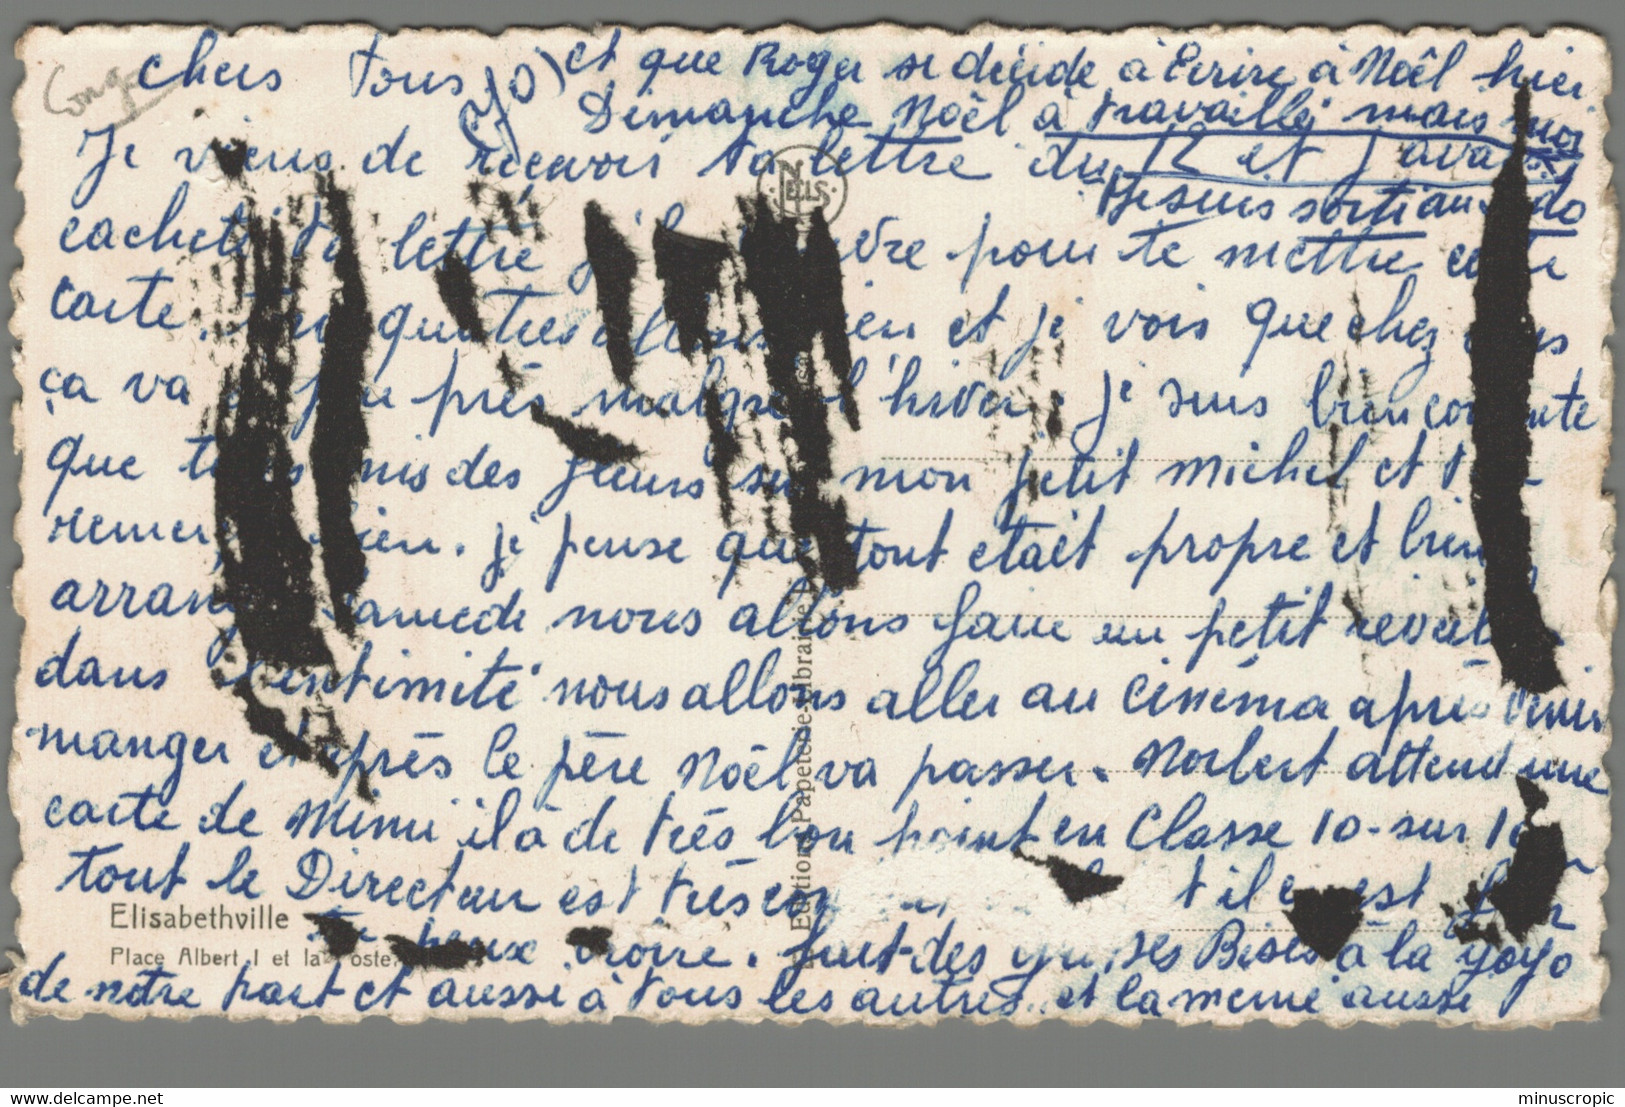 Congo
chers tous
yoyo) et que Roger se décide à écrire, à Noêl hier
Dimanche Noêl à travaillé mais moi
Je viens de recevoir ta lettre du 12 et j'avais
je suis sorti au
cacheté ta lettre pour te mettre cette
carte. quitres allons bien et je vois que chez vous
ça va à peu près malgré l'hiver. je suis bien contente
que tu as mis des fleurs sur mon petit Michel et
remercie bien. je pense que tout etait propre et bien
arrangé Samedi nous allons faire un petit reveillon
dans l'intimité nous allons aller au cinéma après venir
manger et après le père Noêl va passer. Norbert attend une
carte de Mimi il à de très bon point en Classe 10 sur 10
tout le Directeur est très et il est
tu peux croire. des Bises à la yoyo
de notre part et aussi à tous les autres et la meme aussi
NELS
Elisabethville
Place Albert I et la Poste.
Editions Papeterie-librairie
minuscropic